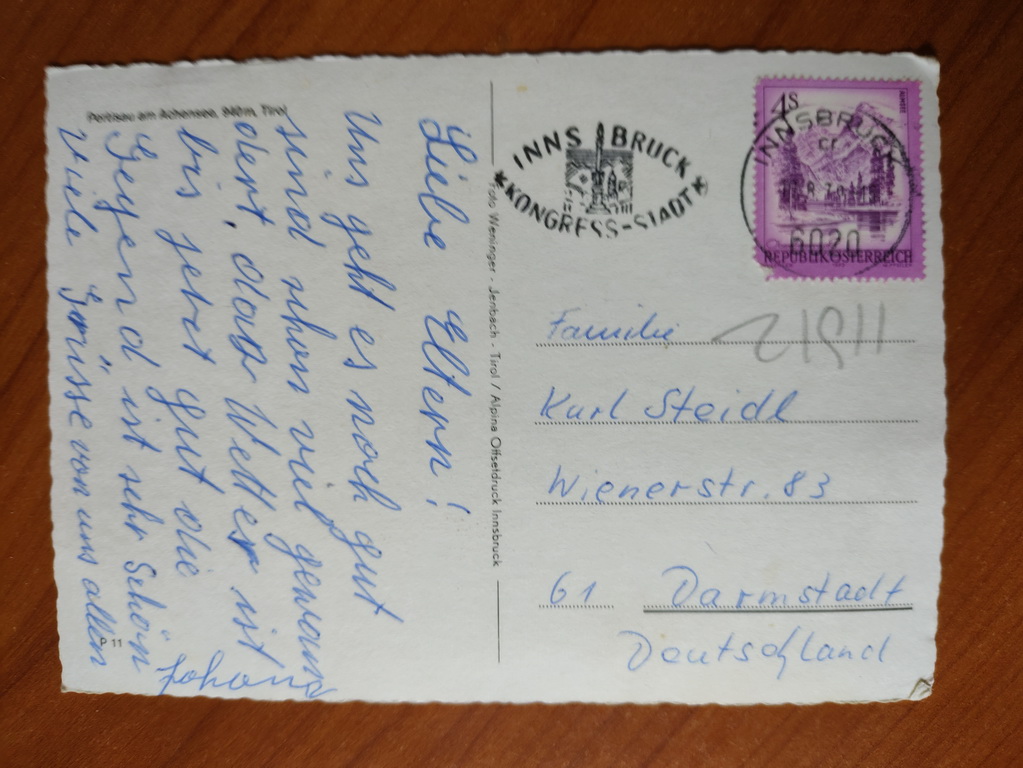 Pertisau am Achensee, 940m, Tirol
Liebe Eltern!
Uns geht es noch gut
sind schon viel gewan
dert, das Wetter ist
bis jetzt gut die
Gegend ist sehr Schön
Viele Grüsse von uns allen
P 11
Foto Weninger - Jenbach - Tirol / Alpina Offsetdruck Innsbruck
INNSBRUCK
KONGRESS-STADT
4S
INNSBRUCK
6020
REPUBLIK ÖSTERREICH
Familie
Karl Steidl
Wienerstr. 83
61 Darmstadt
Deutschland